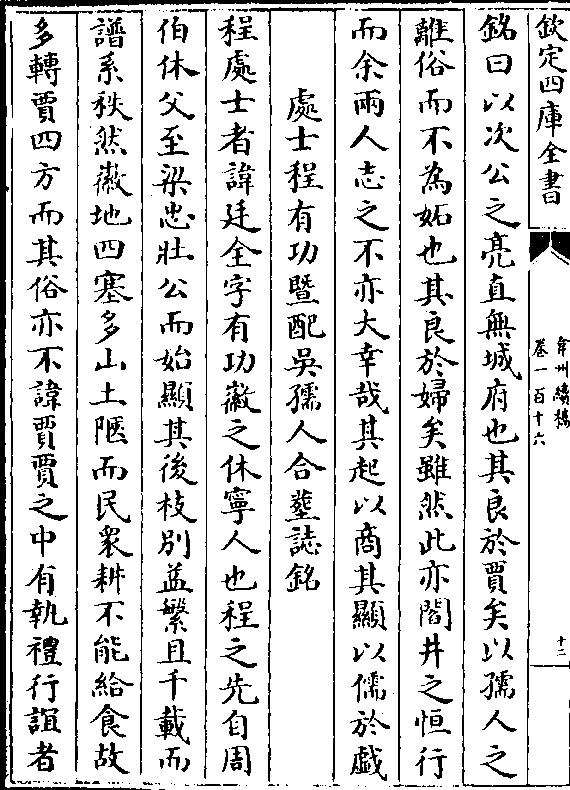 欽定四庫全書
弇州續稿
卷一百十六
十二
銘曰以次公之亮直無城府也其良於賈矣以孺人之
離俗而不為妬也其良於婦矣雖然此亦閻井之恒行
而余兩人志之不亦大幸哉其起以商其顯以儒於戯
處士程有功暨配吳孺人合塟誌銘
程處士者諱廷全字有功徽之休寧人也程之先自周
伯休父至梁忠壯公而始顯其後枝別益繁且千載而
譜系秩然徽地四塞多山土陿而民衆耕不能給食故
多轉賈四方而其俗亦不諱賈賈之中有執禮行誼者